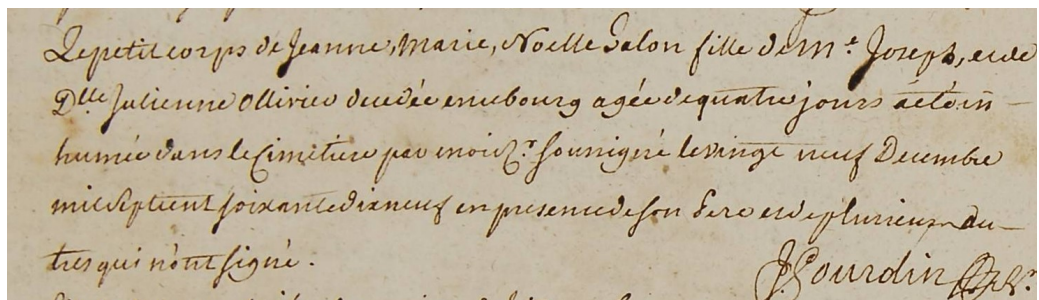 Le petit corps de Jeanne, Marie, Noelle Salon fille de mr Joseph, et de
Dlle Julienne Ollivier decedée en ce bourg agée de quatre jours a eté in-
humée dans le Cimetiere par moi soussigné le vingt neuf Decembre
mil Sept cent soixante dix neuf en presence de son Pere et de plusieurs au-
tres qui n'ont signé.
J. Gourdin